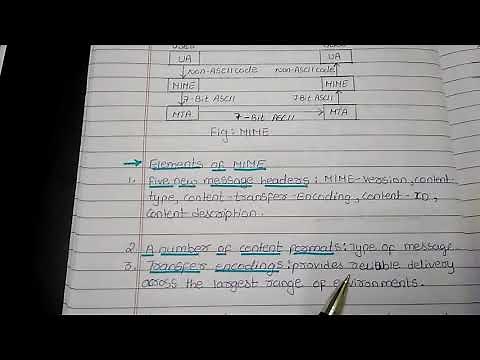 UA UA
non-ASCII code non-ASCII code
MIME MIME
7-Bit ASCII 7-Bit ASCII
MTA 7-Bit ASCII MTA
Fig: MIME
→ Elements of MIME
1. Five new message headers: MIME-Version, content
type, content-transfer-encoding, content-ID,
content description.
2. A number of content formats: Type of message
3. Transfer encodings: provides reliable delivery
across the largest range of environments.